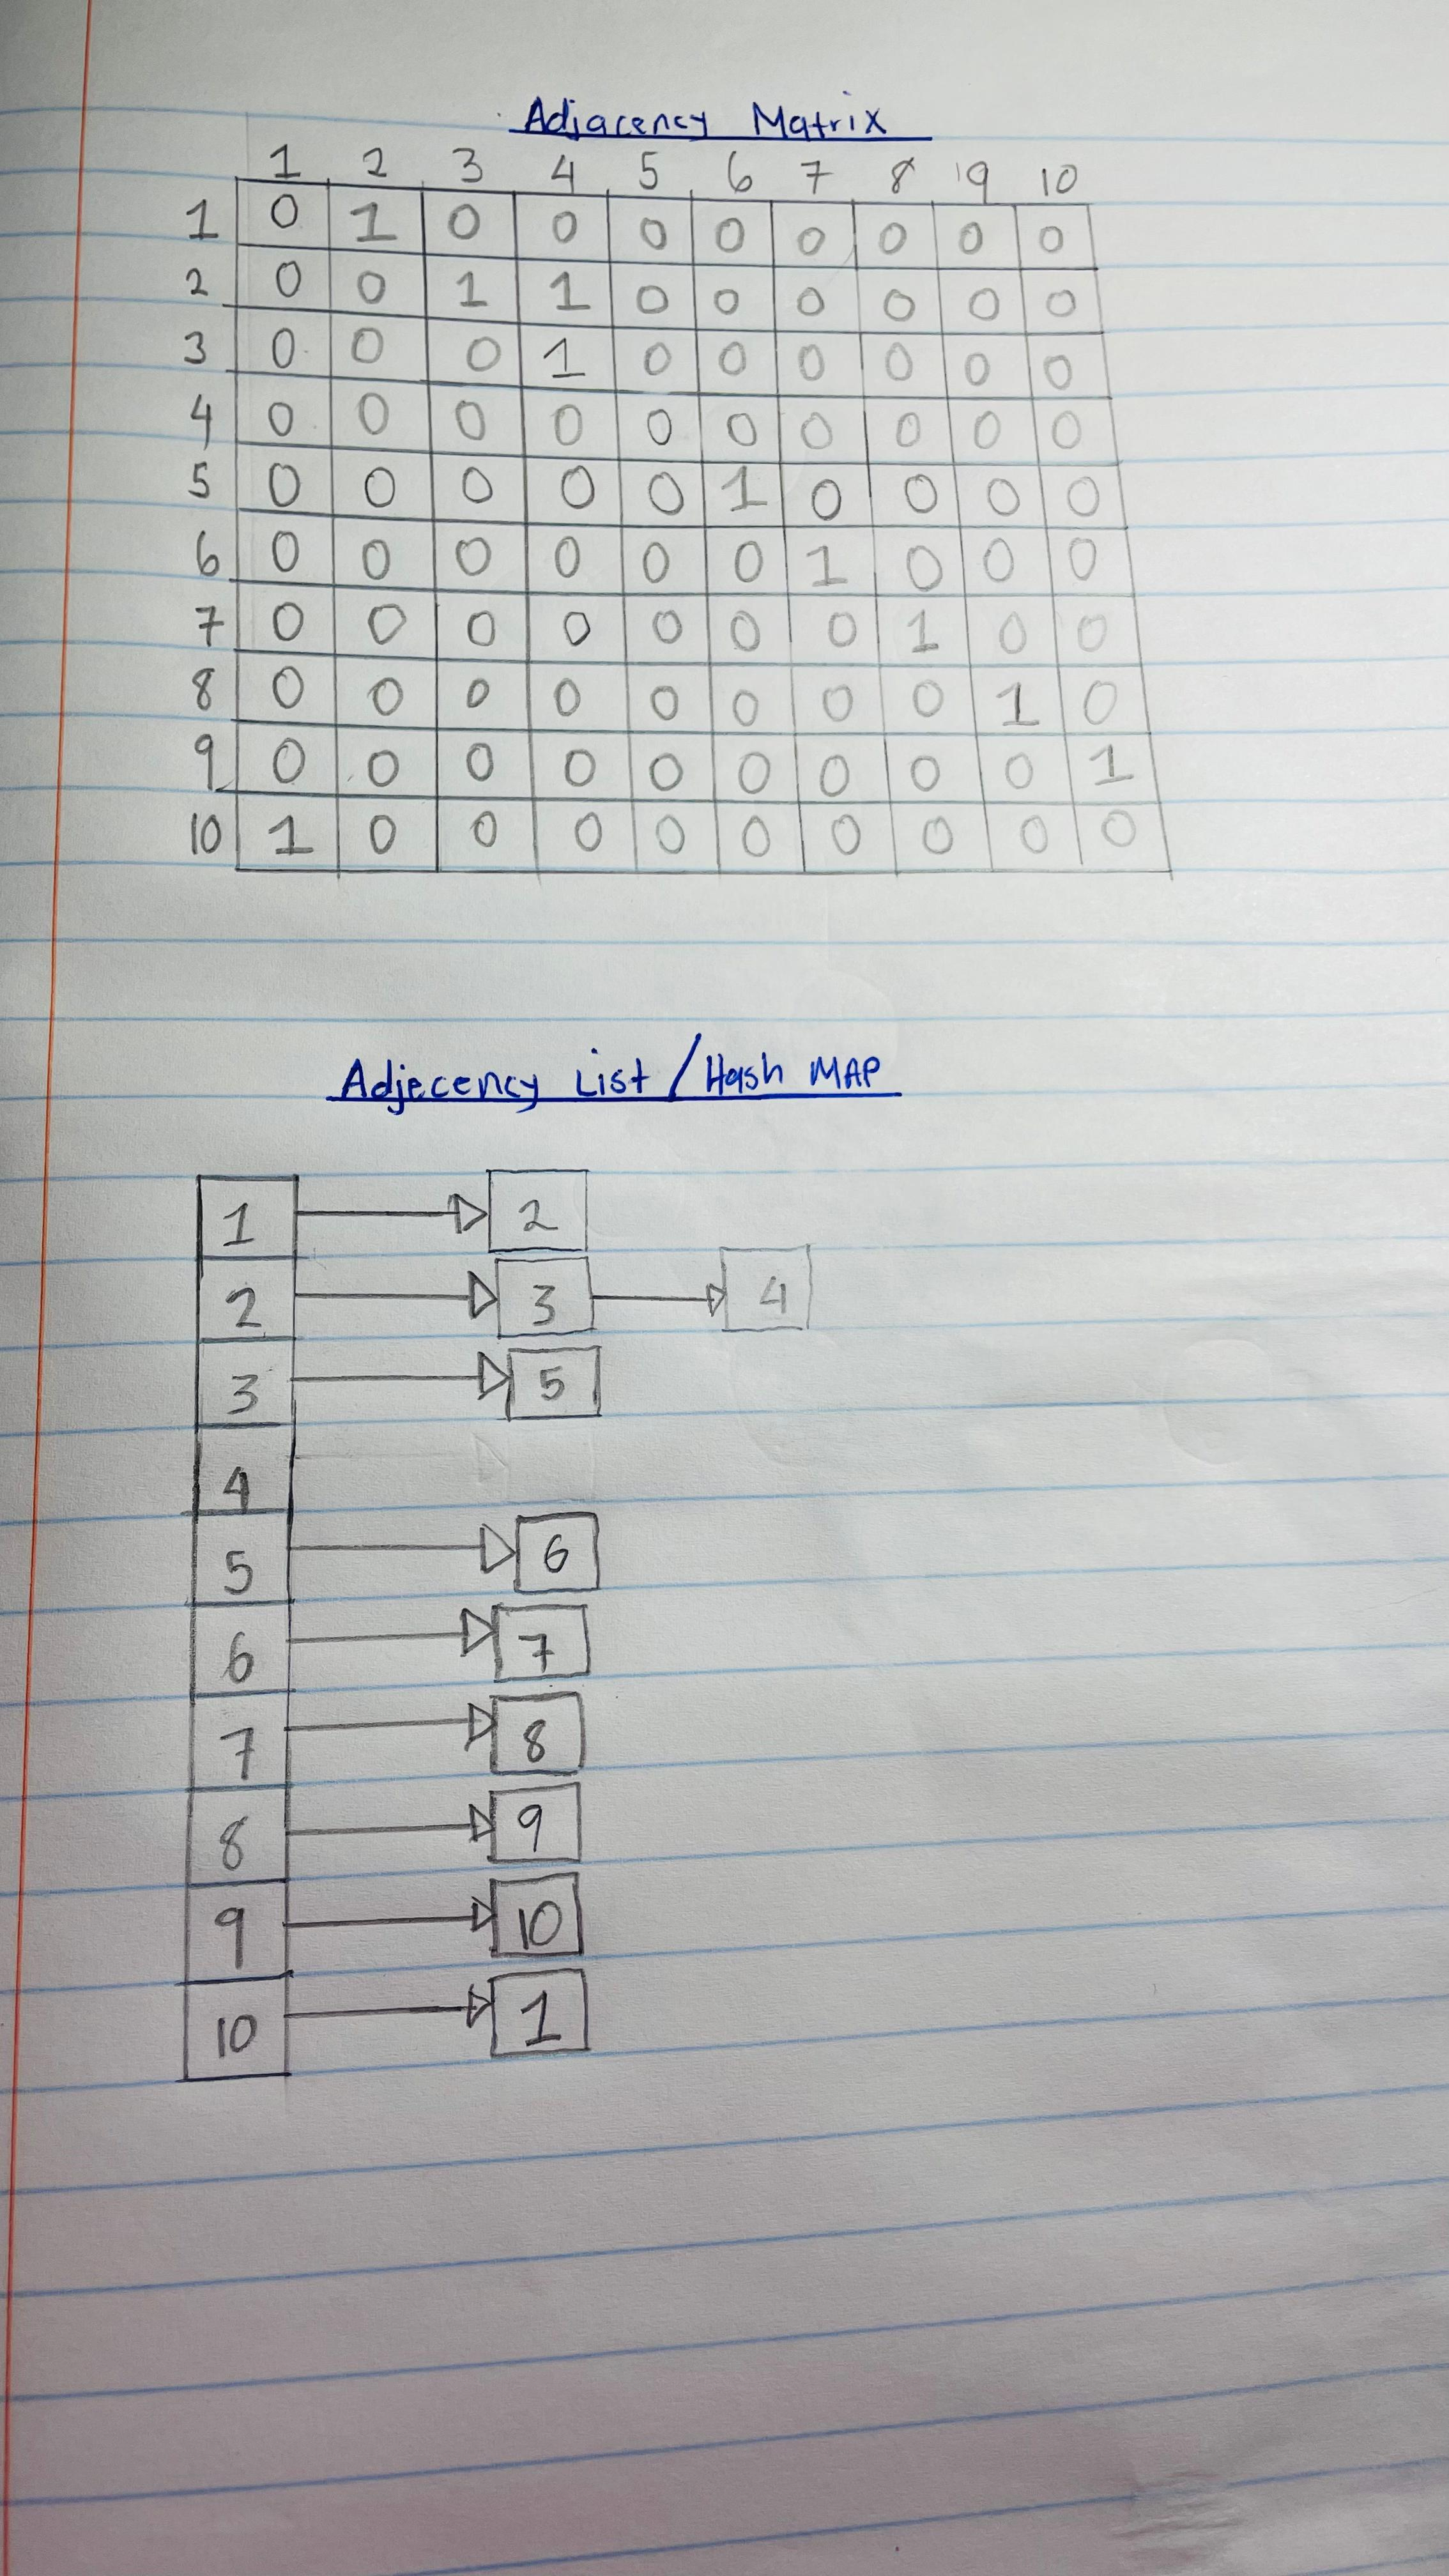 Adjacency Matrix
1 2 3 4 5 6 7 8 9 10
1 0 1 0 0 0 0 0 0 0 0
2 0 0 1 1 0 0 0 0 0 0
3 0 0 0 1 0 0 0 0 0 0
4 0 0 0 0 0 0 0 0 0 0
5 0 0 0 0 0 1 0 0 0 0
6 0 0 0 0 0 0 1 0 0 0
7 0 0 0 0 0 0 0 1 0 0
8 0 0 0 0 0 0 0 0 1 0
9 0 0 0 0 0 0 0 0 0 1
10 1 0 0 0 0 0 0 0 0 0
Adjecency List / Hash MAP
1 2
2 3 4
3 5
4
5 6
6 7
7 8
8 9
9 10
10 1